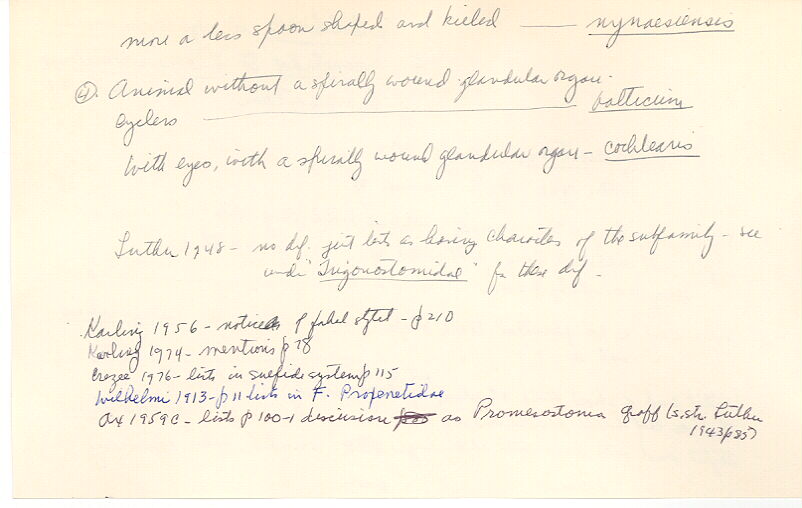 more or less spoon shaped and keeled —— nynaesiensis
④. Animal without a spirally wound glandular organ.
eyeless —— balticum
With eyes, with a spirally wound glandular organ — cochlearis
Luther 1948 — no dif. just lists as having characters of the subfamily — see
under "Trigonostomidae" for these dif —
Karling 1956 — notices of stylet — p 210
Karling 1974 — mentions p 78
Crezee 1976 — lists in sulfide system p 115
Wilhelmi 1913 — p 11 lists in F. Proxenetidae
Ax 1959c — lists p 100-1 discussion as Promesostoma Graff (s. str. Luther
1943 p 55)